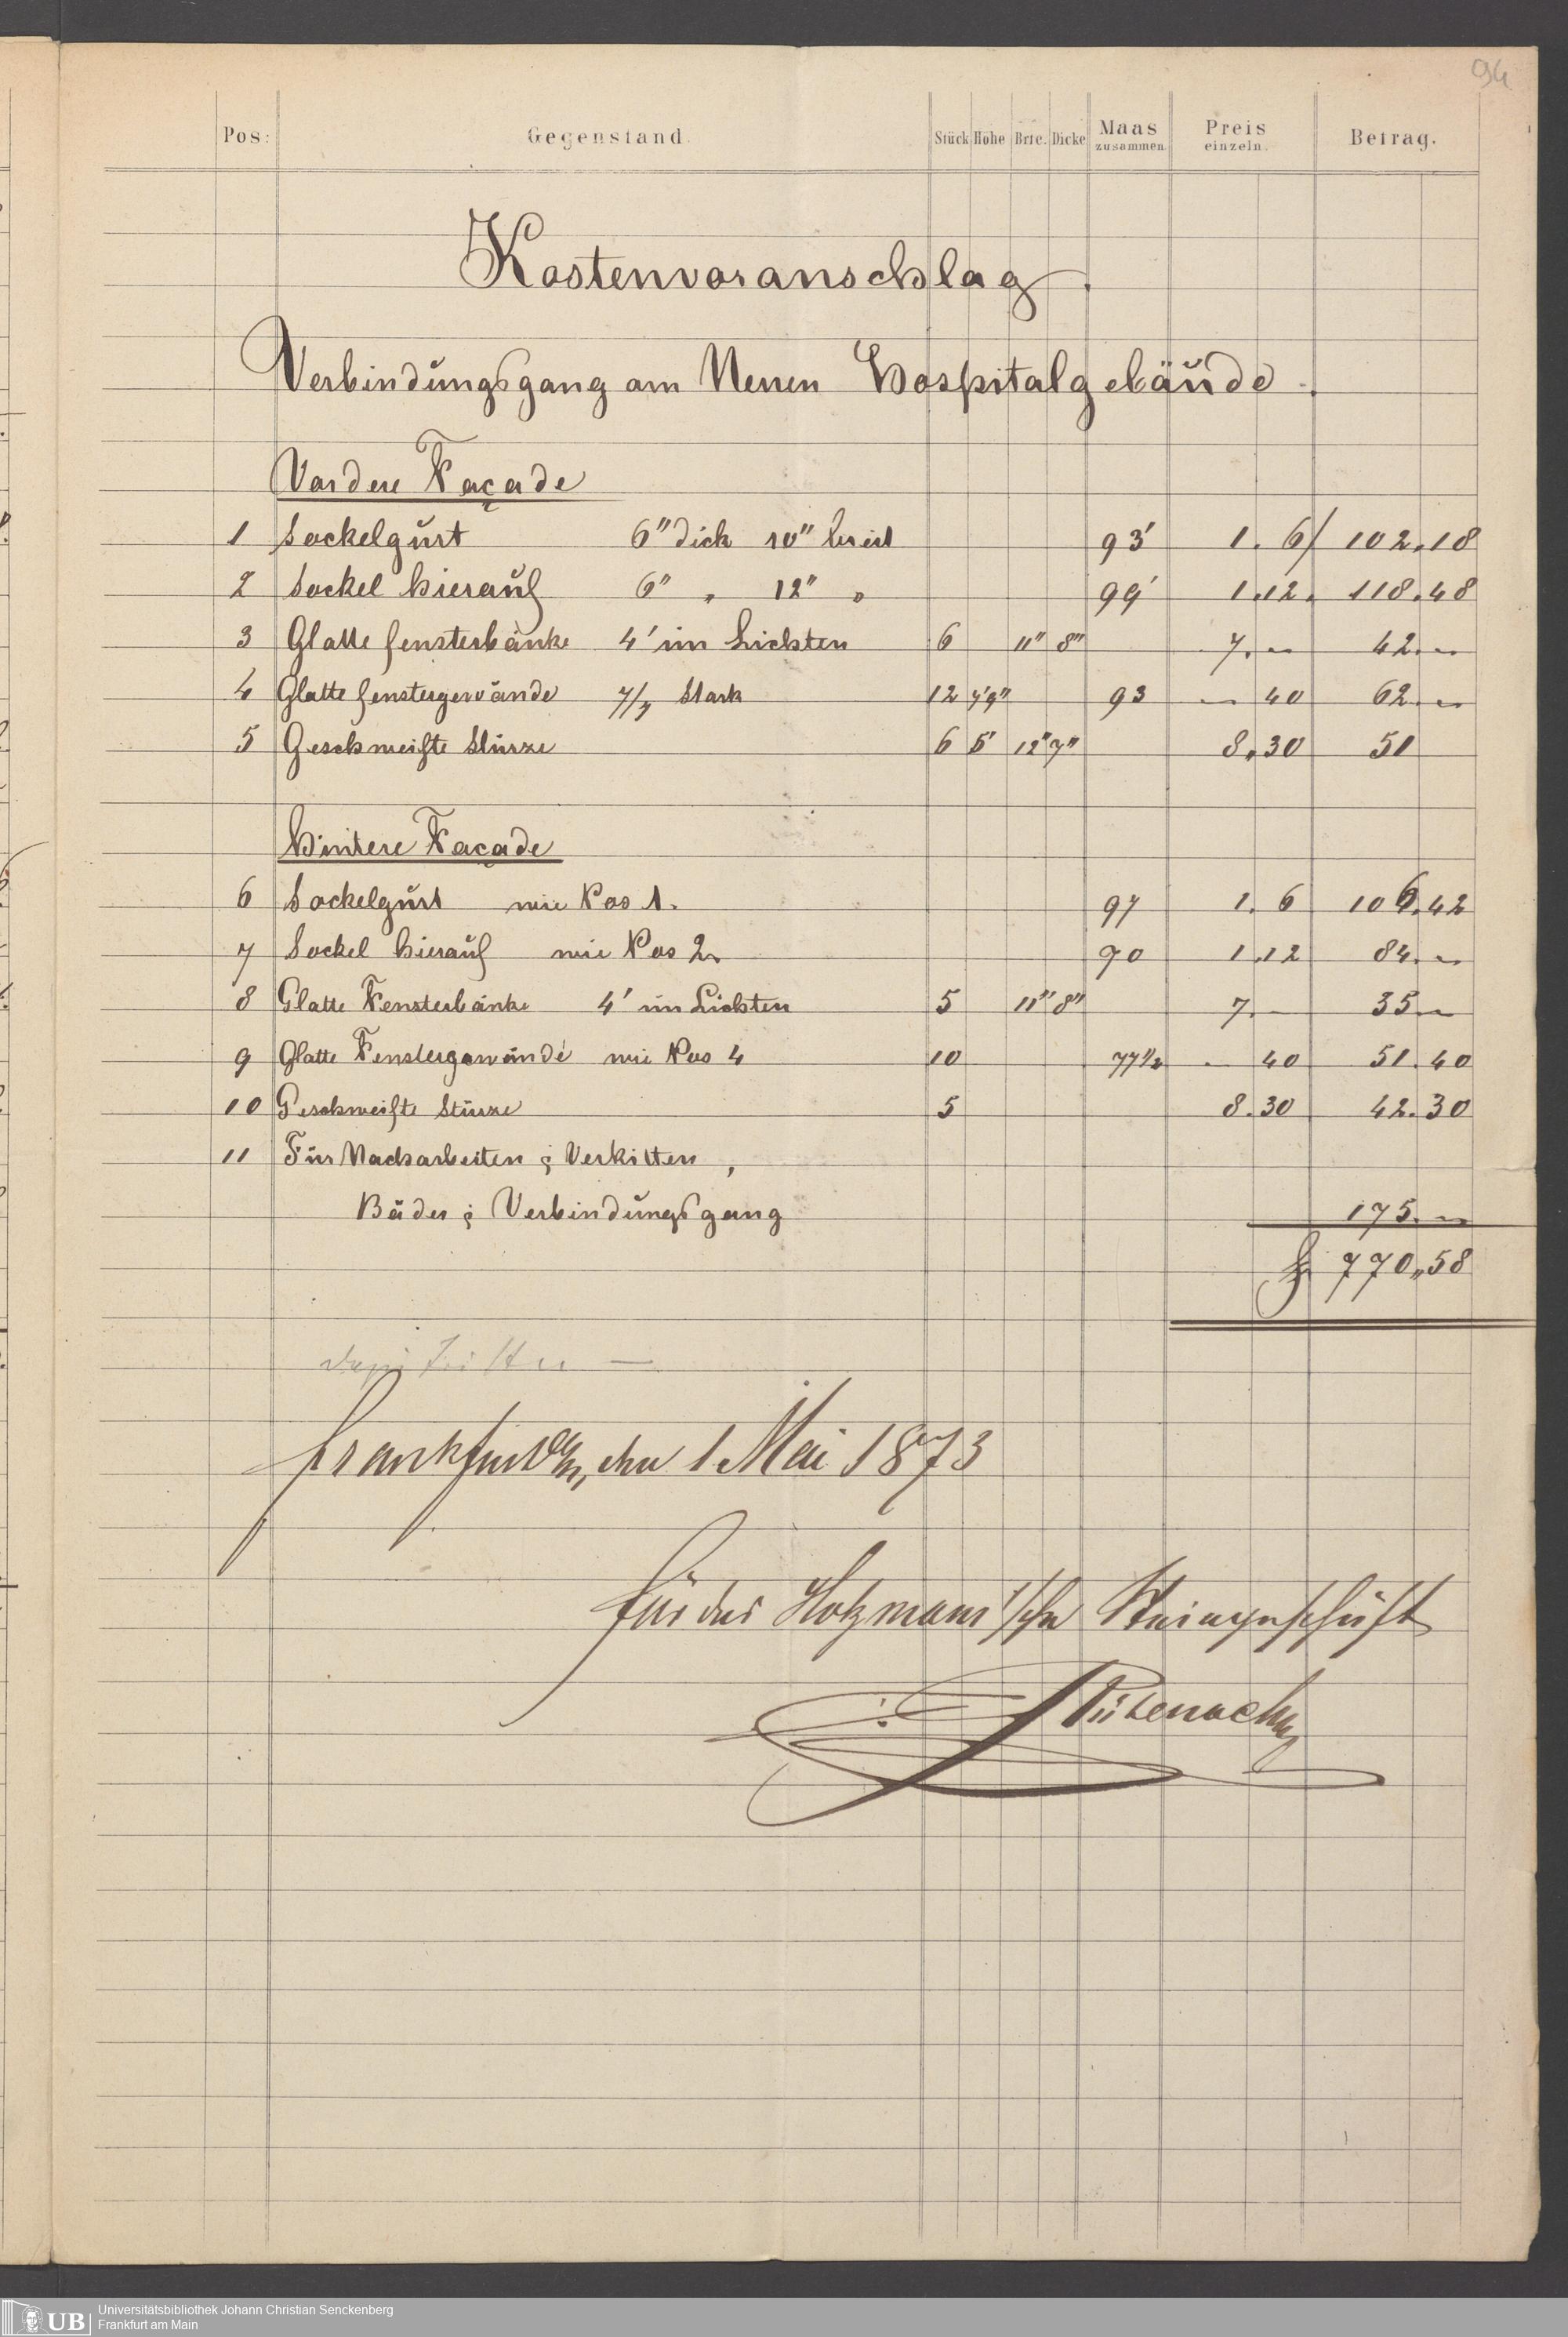 94
Pos: Gegenstand. Stück Höhe Brte. Dicke Maas zusammen. Preis einzeln. Betrag.
Kostenvoranschlag.
Verbindungsgang am Neuen Hospitalgebäude.
Vordere Façade
1 Sockelgurt 6" dick 10" breit 93' 1. 6/ 102.18
2 Sockel hierauf 6" " 12" " 99' 1.12. 118.48
3 Glatte Fensterbänke 4' im Lichten 6 11" 8" 7.– 42.–
4 Glatte Fenstergewände 7/7 Stark 12 7'9" 93 – 40 62.–
5 Geschweifte Stürze 6 5' 12" 7" 8.30 51
Hintere Façade
6 Sockelgurt wie Pos 1. 97 1. 6 106.42
7 Sockel hierauf wie Pos 2. 70 1.12 84.–
8 Glatte Fensterbänke 4' im Lichten 5 11" 8" 7.– 35.–
9 Glatte Fenstergewände wie Pos 4 10 77 1/2 – 40 51.40
10 Geschweifte Stürze 5 8.30 42.30
11 Für Nacharbeiten & Verkitten,
Bäder & Verbindungsgang 175.–
f 770,58
Frankfurt a/M, den 1 Mai 1873
Für das Holzmann'sche Steingeschäft
UB Universitätsbibliothek Johann Christian Senckenberg
Frankfurt am Main